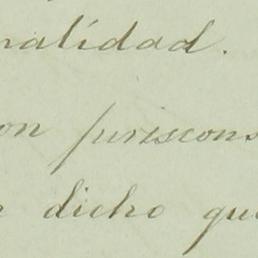 nalidad.
on juriscons
dicho que